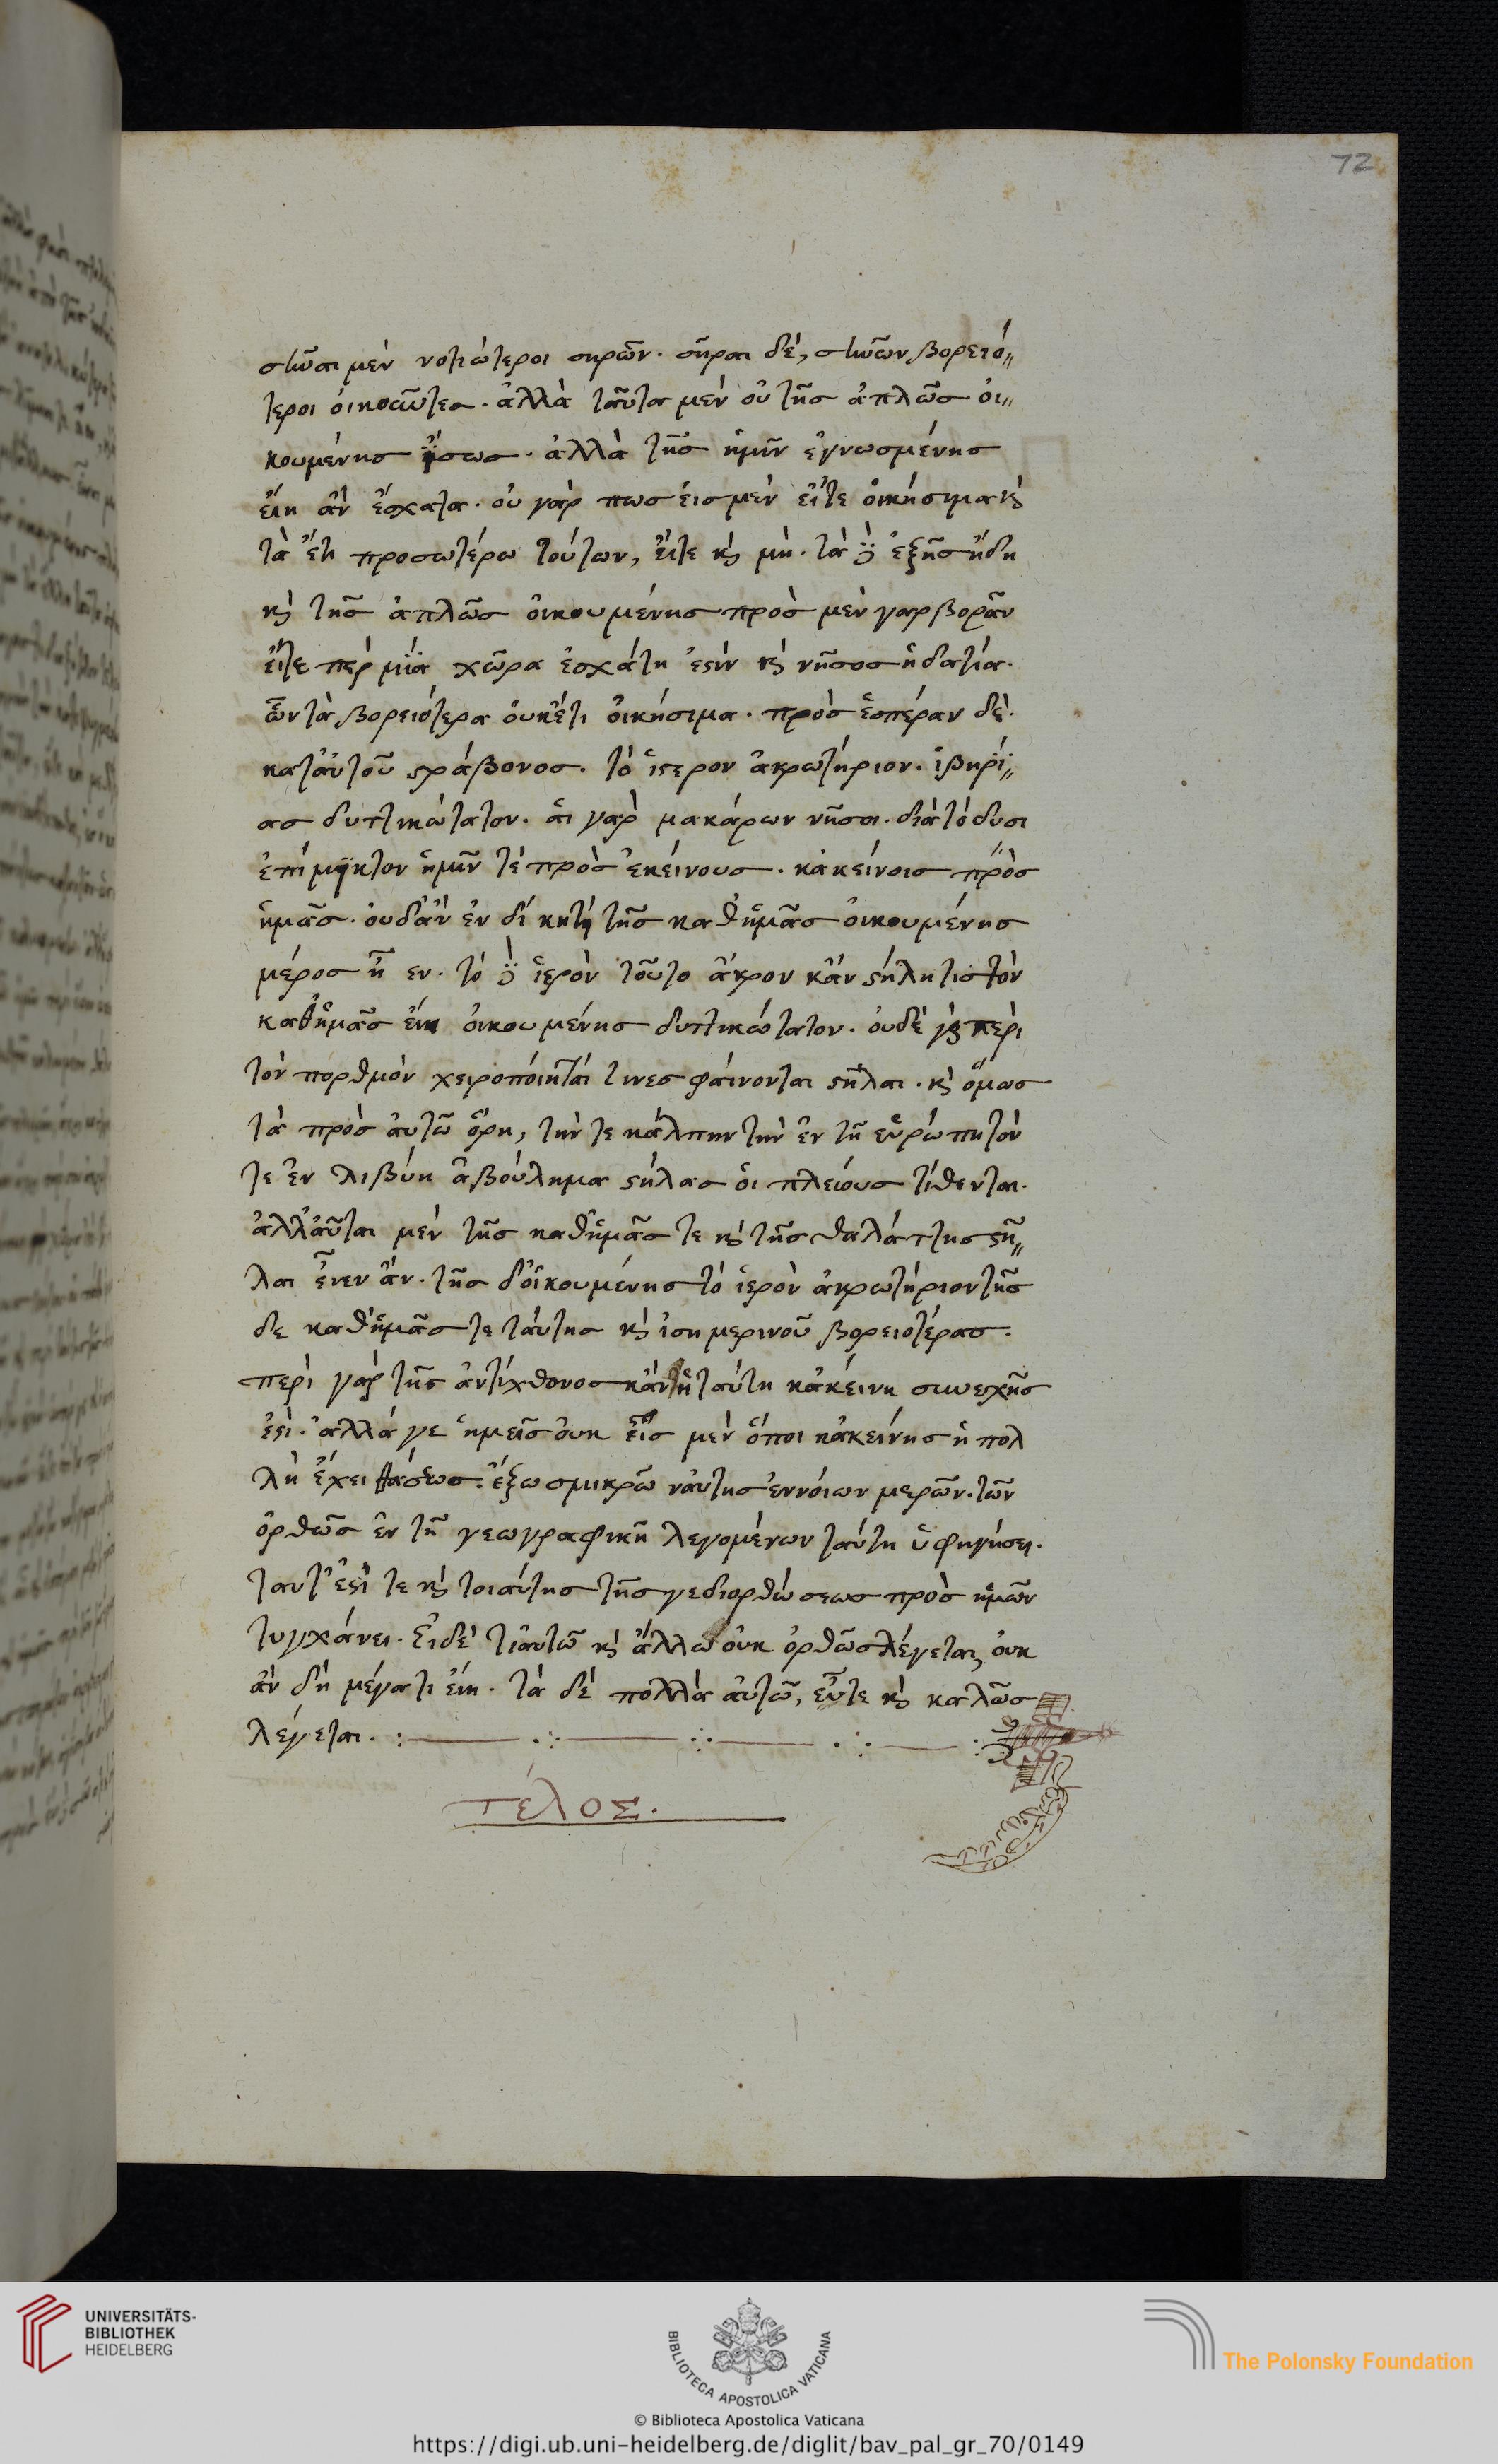 72
σῖναι μὲν νοτιώτεροι σηρῶν. σῆραι δέ, σινῶν βορειό〃
τεροι οἰκοῦντες. ἀλλὰ ταῦτα μὲν οὐ τῆς ἁπλῶς οἰ〃
κουμένης ἴσως. ἀλλὰ τῆς ἡμῖν ἐγνωσμένης
εἴη ἂν ἔσχατα. οὐ γάρ πως ἴσμεν εἴτε οἰκήσιμα κ̀
τὰ ἔτι προσωτέρω τούτων, εἴτε κ̀ μή. τὰ δ̈ ἑξῆς ἤδη
κ̀ τῆς ἁπλῶς οἰκουμένης πρὸς μὲν γὰρ βορᾶν
εἴτε περ μία χῶρα ἐσχάτη ἐστὶν κ̀ νῆσος ἡδατία.
ὧν τὰ βορειότερα οὐκέτι οἰκήσιμα. πρὸς ἑσπέραν δὲ.
κατ' αὐτοῦ στράβονος. τὸ ἱερον ἀκρωτήριον. ἰβηρί〃
ας δυτικώτατον. αἱ γὰρ μακάρων νῆσοι. διὰ τὸ δυσ
επίμικτον ἡμῖν τὲ πρὸς ἐκείνους. κἀκείνοις πρὸς
ἡμᾶς. οὐδ' ἂν ἐν δίκῃ τὶ τῆς καθ' ἡμᾶς οἰκουμένης
μέρος ἦεν. τὸ δ̈ ἱερὸν τοῦτο ἄκρον κἂν στήλη τις τὸν
καθ' ἡμᾶς εἴη οἰκουμένης δυτικώτατον. οὐδὲ γὰρ περὶ
τὸν πορθμὸν χειροποίηταί τινες φαίνονται στῆλαι. κ̀ ὅμως
τὰ πρὸς αὐτῶ ὄρη, τήν τε κάλπην τὴν ἐν τῇ εὐρώπῃ τόν
τε ἐν λιβύη ἀβούλημα στήλας οἱ πλείους τίθενται.
ἀλλ' αὗται μὲν τῆς καθ' ἡμᾶς τε κ̀ τῆς θαλάττης στῆ〃
λαι εἶνεν ἄν. τῆς δ' οἰκουμένης τὸ ἱερὸν ἀκρωτήριον τῆς
δε καθ' ἡμᾶς τε ταύτης κ̀ ἰσημερινοῦ βορειοτέρας.
περὶ γὰρ τῆς ἀντίχθονος κἂν ᾖ ταύτη κἀκείνη συνεχής
ἐστι. ἀλλά γε ἡμεῖς οὐκ εἷς μὲν ὅποι κἀκείνης ἡ πολ
λὴ ἔχει θάσεως. ἔξω σμικρῶν αὐτῆς ἐννοίων μερῶν. τῶν
ὀρθῶς ἐν τῇ γεωγραφικῇ λεγομένων ταύτη ὑφηγήσει.
ταυτ' ἐστί τε κ̀ τοιαύτης τῆς γε διορθώσεως πρὸς ἡμῶν
τυγχάνει. εἰ δέ τι αὐτῶ κ̀ ἄλλω οὐκ ὀρθῶς λέγεται, οὐκ
ἂν δὴ μέγα τι εἴη. τὰ δὲ πολλὰ αὐτῶ, εὖ τε κ̀ καλῶς
λέγεται.
τέλος.
UNIVERSITÄTS-
BIBLIOTHEK
HEIDELBERG
BIBLIOTECA APOSTOLICA VATICANA
The Polonsky Foundation
© Biblioteca Apostolica Vaticana
https://digi.ub.uni-heidelberg.de/diglit/bav_pal_gr_70/0149